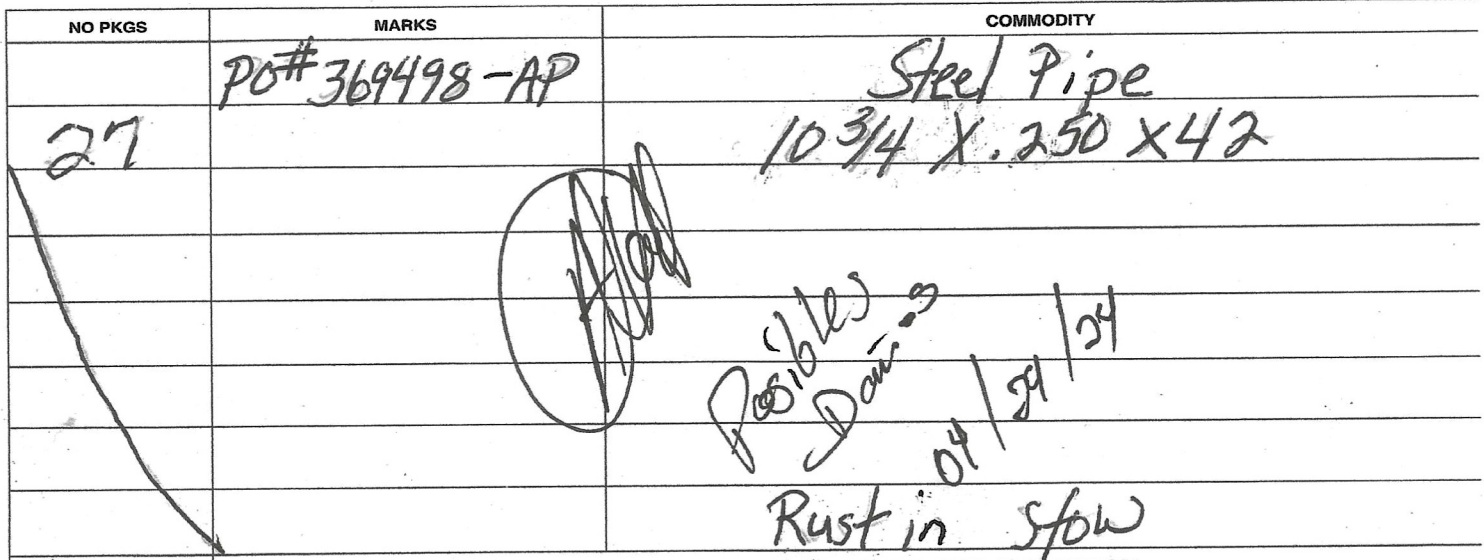 NO PKGS MARKS COMMODITY
PO# 369498-AP Steel Pipe
27 10 3/4 X .250 X 42
Posibles
04/24/24
Rust in stow